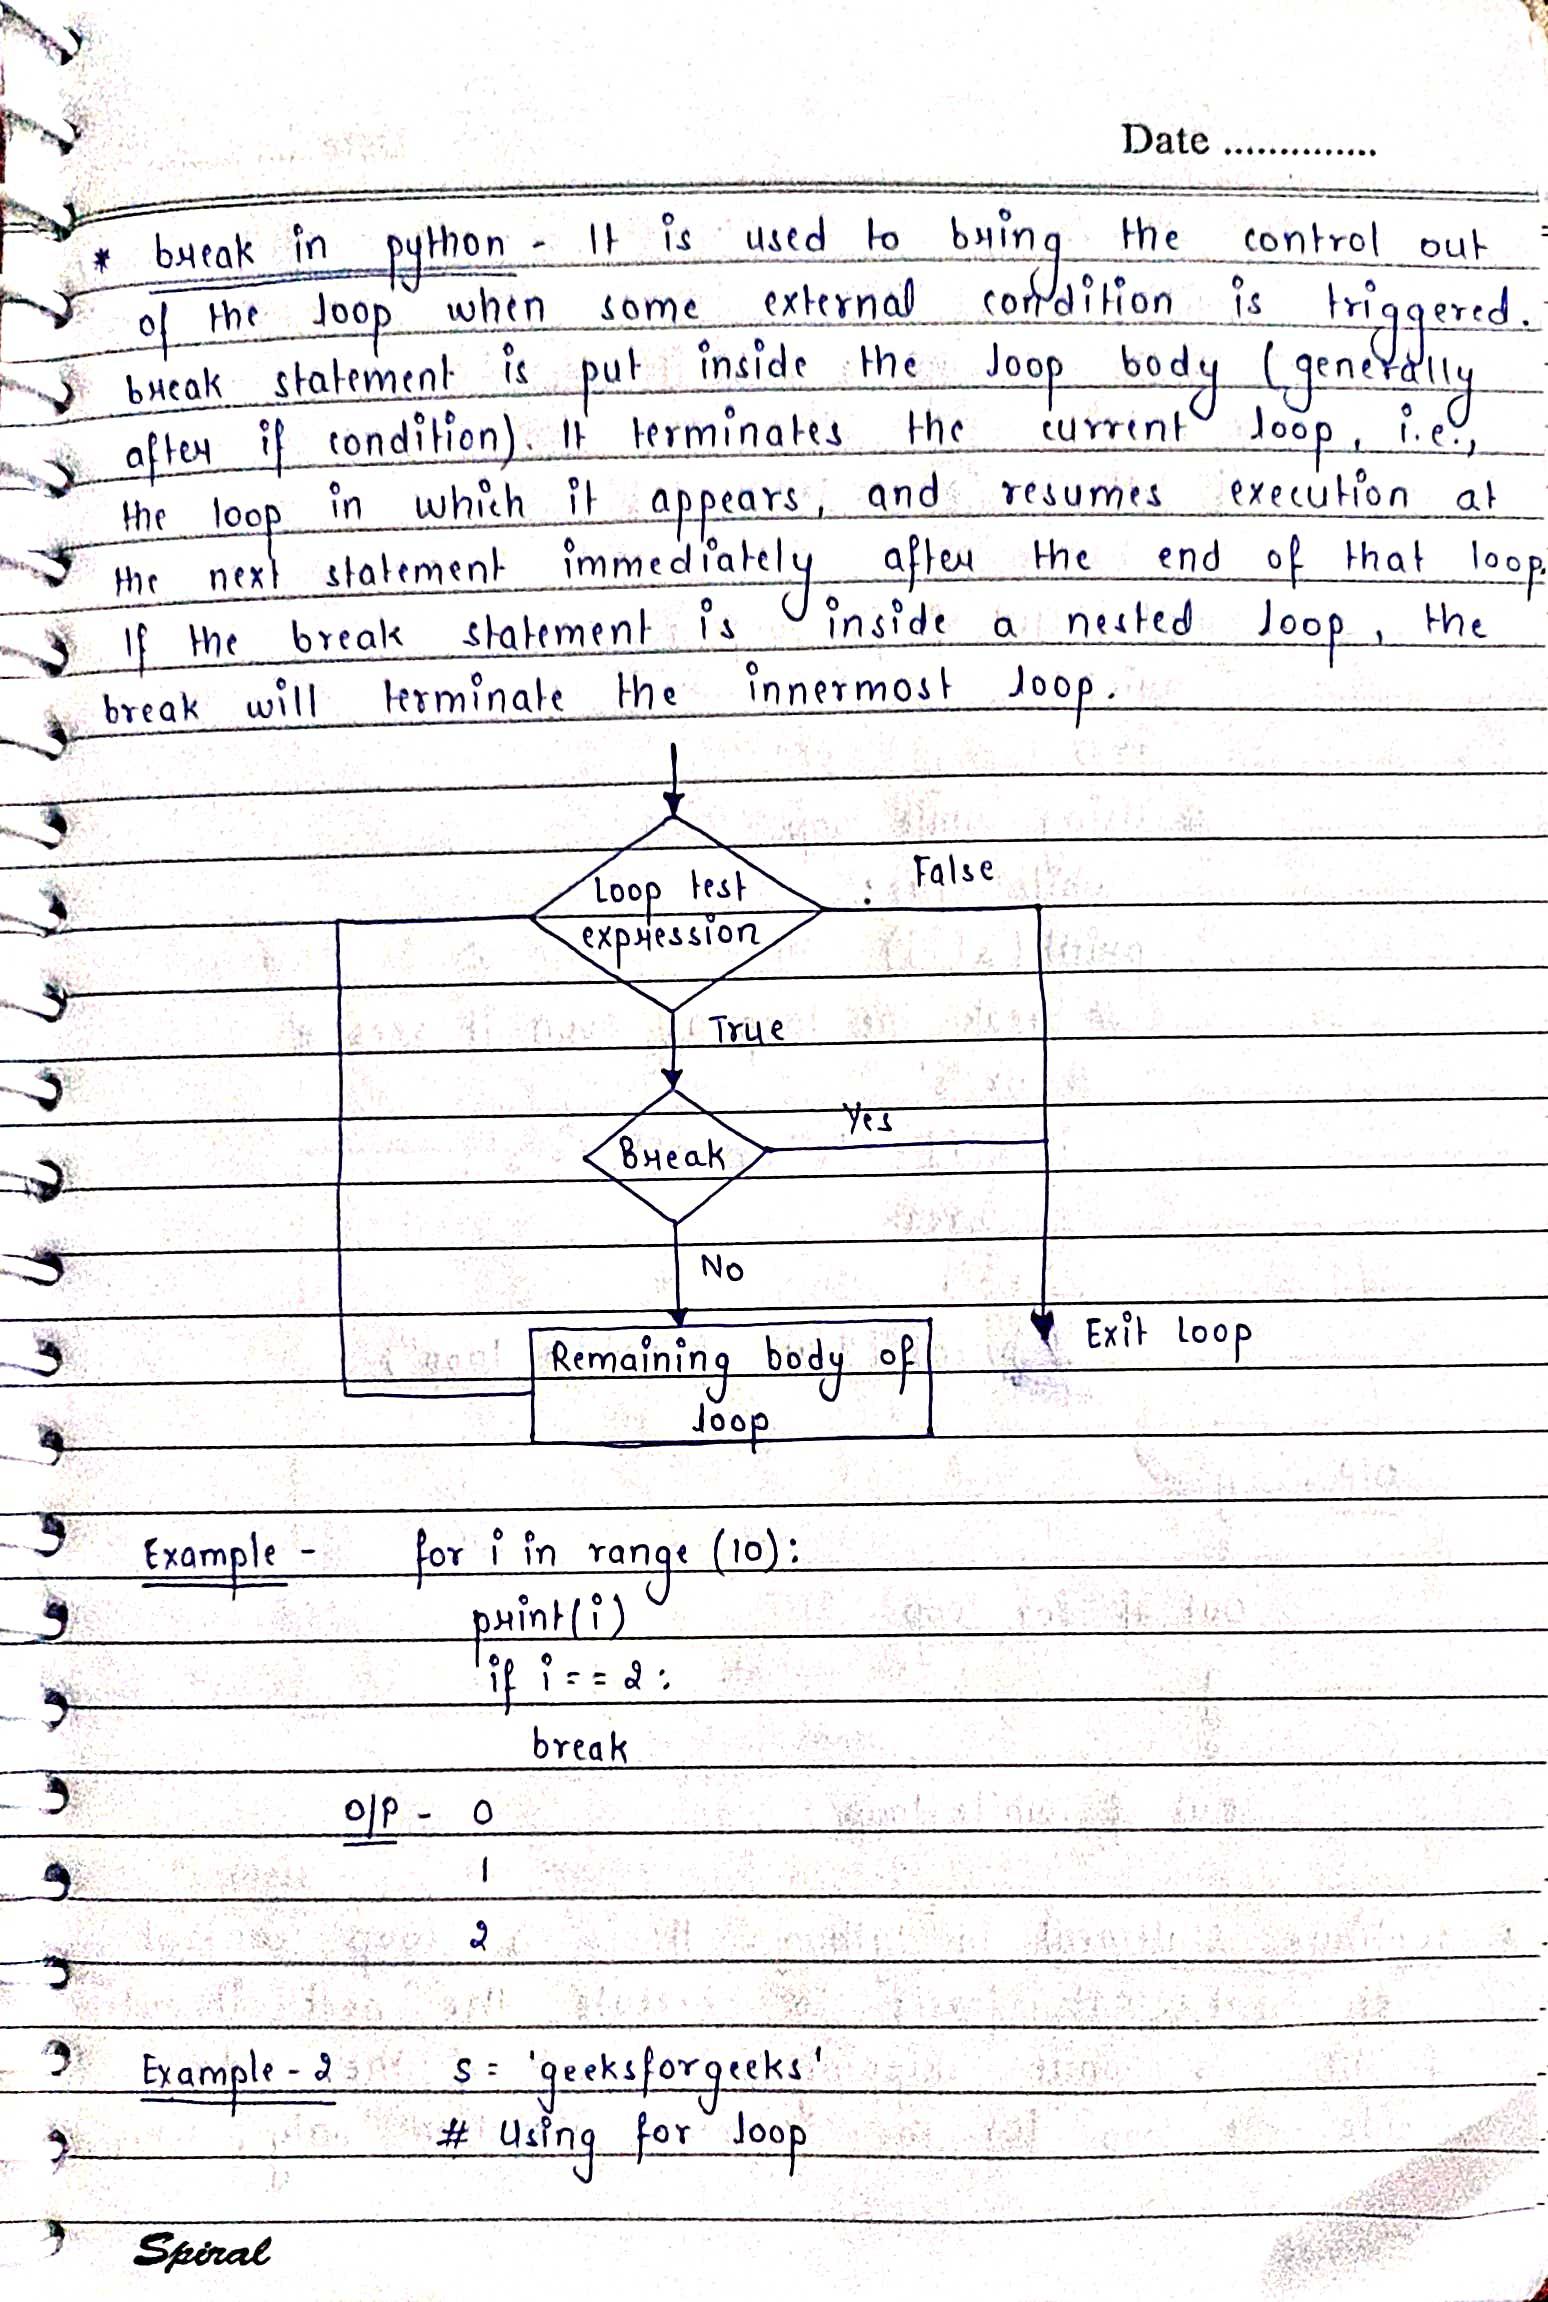 Date ..............
* break in python - It is used to bring the control out
of the loop when some external condition is triggered.
break statement is put inside the loop body (generally
after if condition). It terminates the current loop, i.e.,
the loop in which it appears, and resumes execution at
the next statement immediately after the end of that loop.
If the break statement is inside a nested loop, the
break will terminate the innermost loop.
Loop test
expression
False
True
Break
Yes
No
Remaining body of
loop
Exit Loop
Example - for i in range (10):
print(i)
if i == 2:
break
O/P - 0
1
2
Example - 2 s = 'geeksforgeeks'
# Using for loop
Spiral